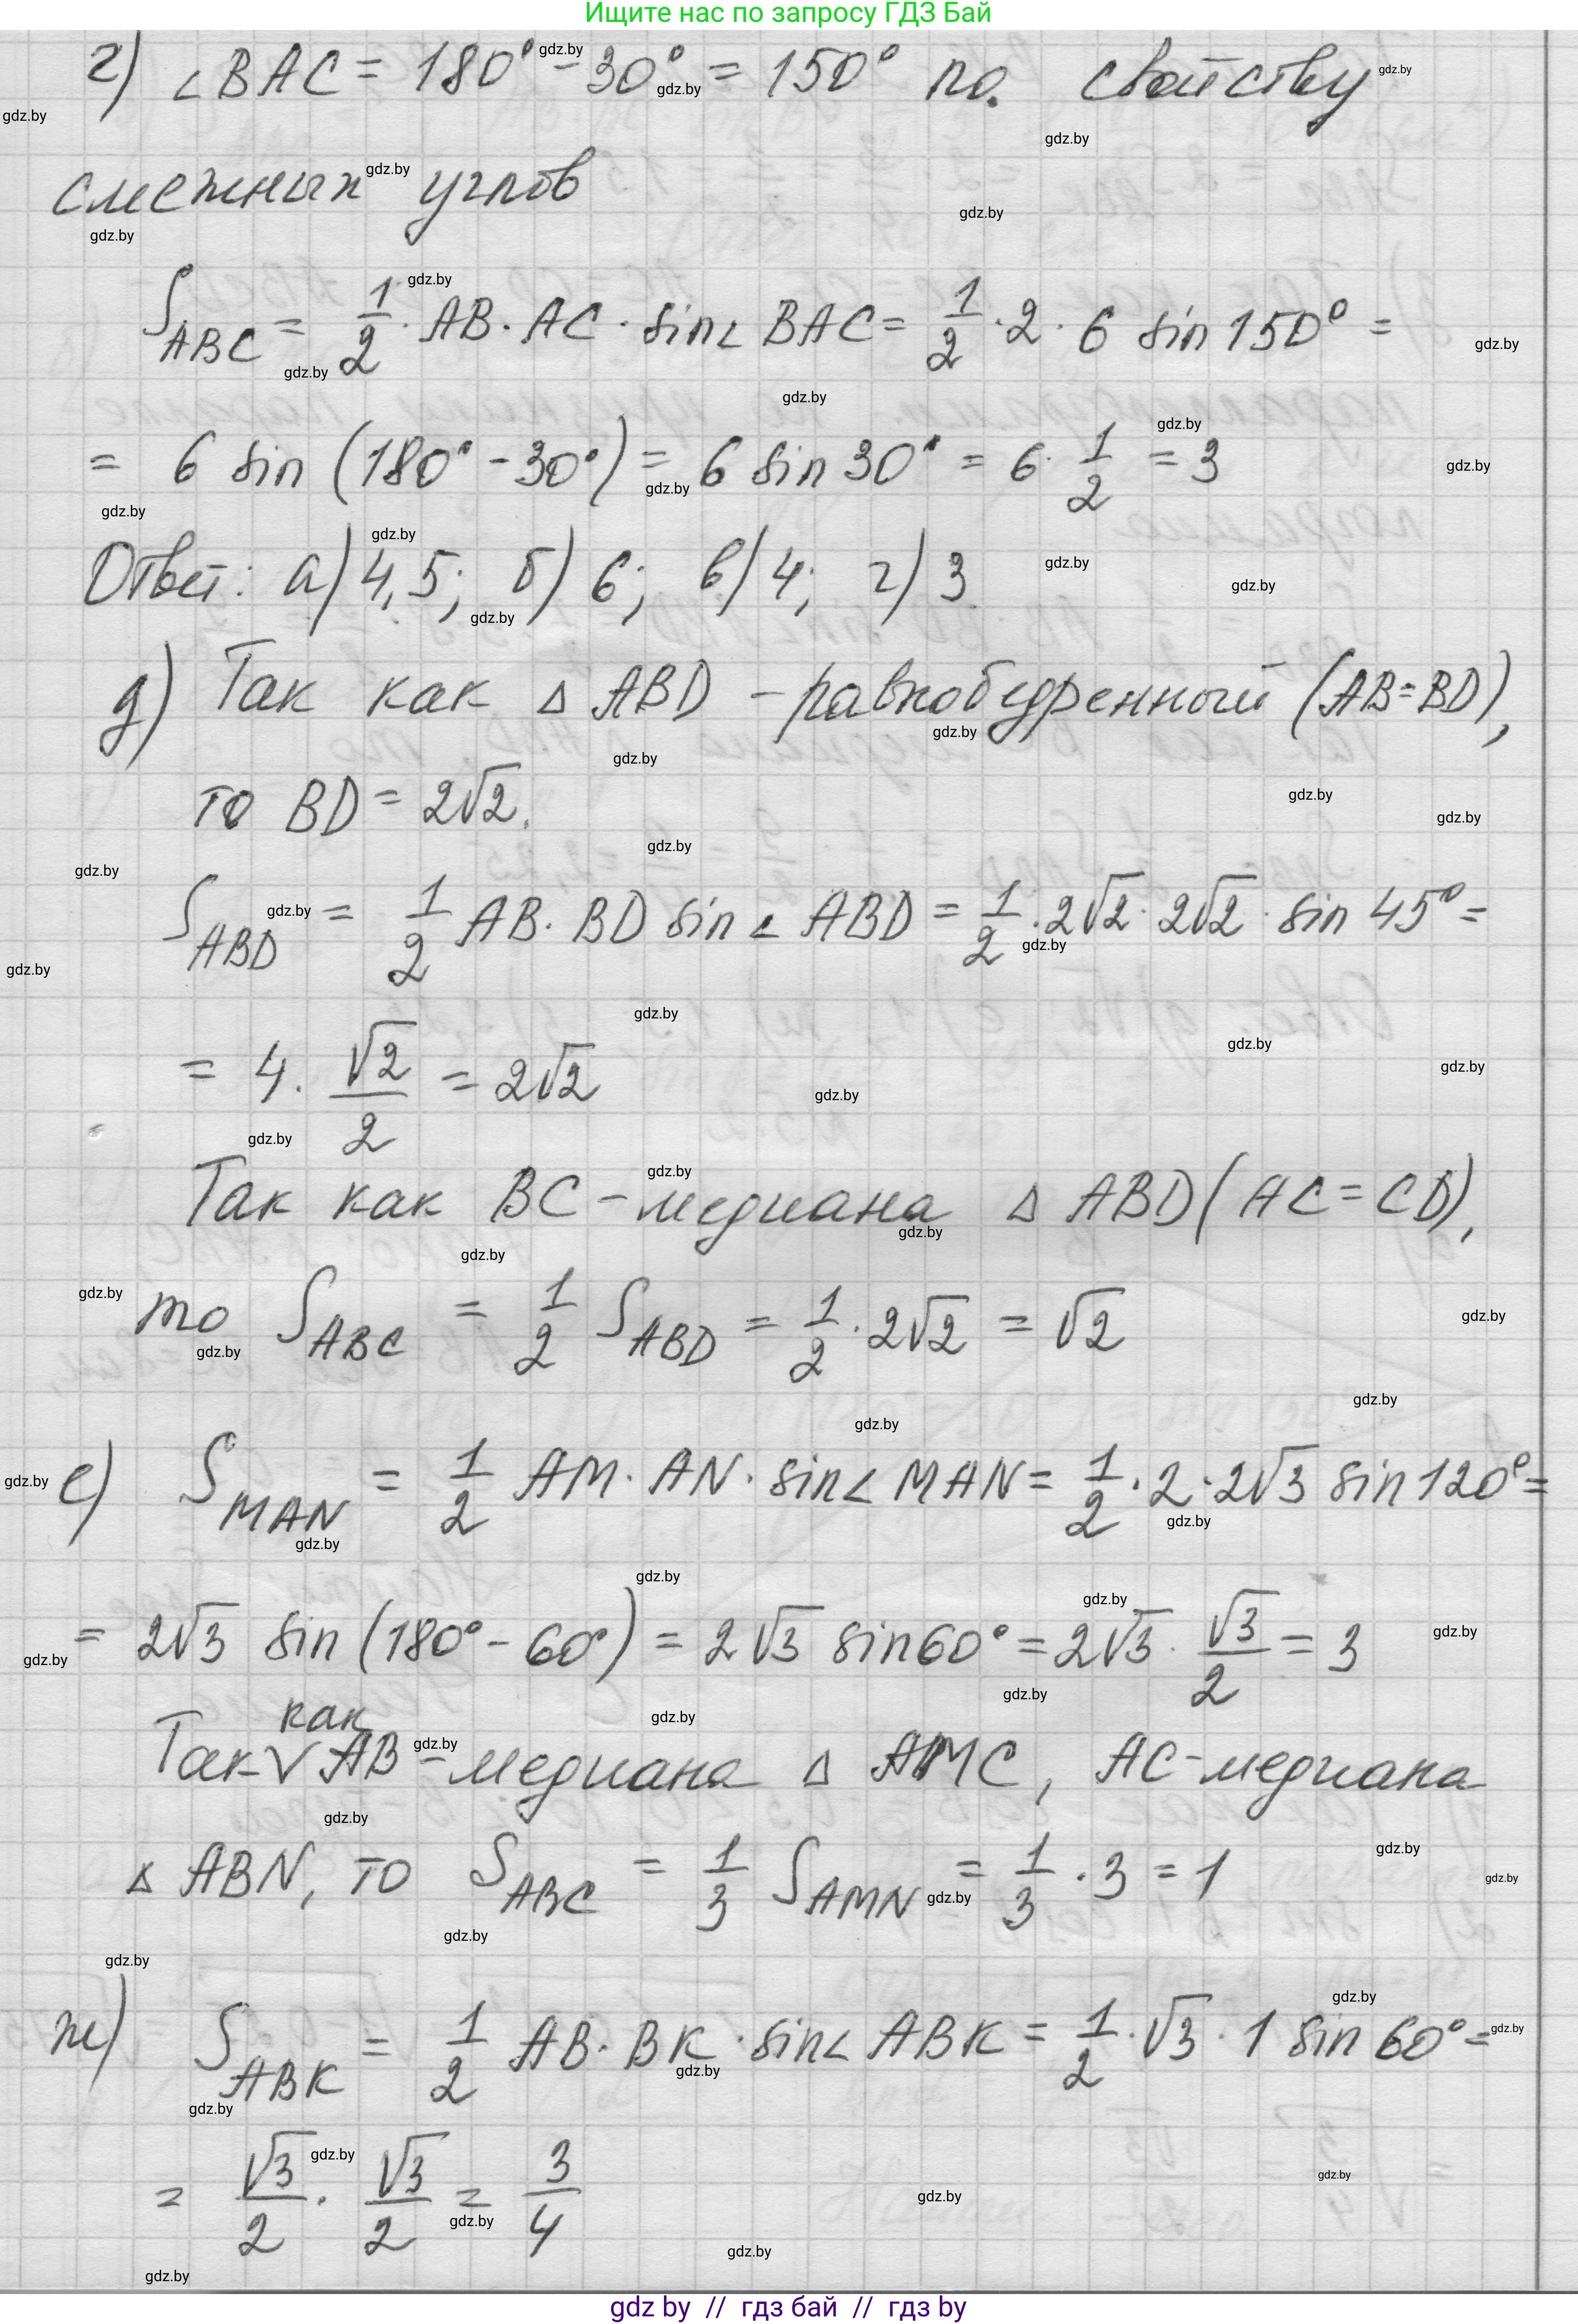 Ищите нас по запросу ГДЗ Бай
г) ∠BAC = 180° - 30° = 150° по свойству
смежных углов
S_ABC = 1/2 · AB · AC · sin∠BAC = 1/2 · 2 · 6 sin 150° =
= 6 sin (180° - 30°) = 6 sin 30° = 6 · 1/2 = 3
Ответ: а) 4,5; б) 6; в) 4; г) 3
д) Так как △ABD - равнобедренный (AB = BD),
то BD = 2√2.
S_ABD = 1/2 AB · BD sin∠ABD = 1/2 · 2√2 · 2√2 · sin 45° =
= 4 · √2/2 = 2√2
Так как BC - медиана △ABD (AC = CD),
то S_ABC = 1/2 S_ABD = 1/2 · 2√2 = √2
е) S_MAN = 1/2 AM · AN · sin∠MAN = 1/2 · 2 · 2√3 sin 120° =
= 2√3 sin (180° - 60°) = 2√3 sin 60° = 2√3 · √3/2 = 3
Так как AB - медиана △AMC, AC - медиана
△ABN, то S_ABC = 1/3 S_AMN = 1/3 · 3 = 1
ж) S_ABK = 1/2 AB · BK · sin∠ABK = 1/2 · √3 · 1 sin 60° =
= √3/2 · √3/2 = 3/4
gdz by // гдз бай // гдз by